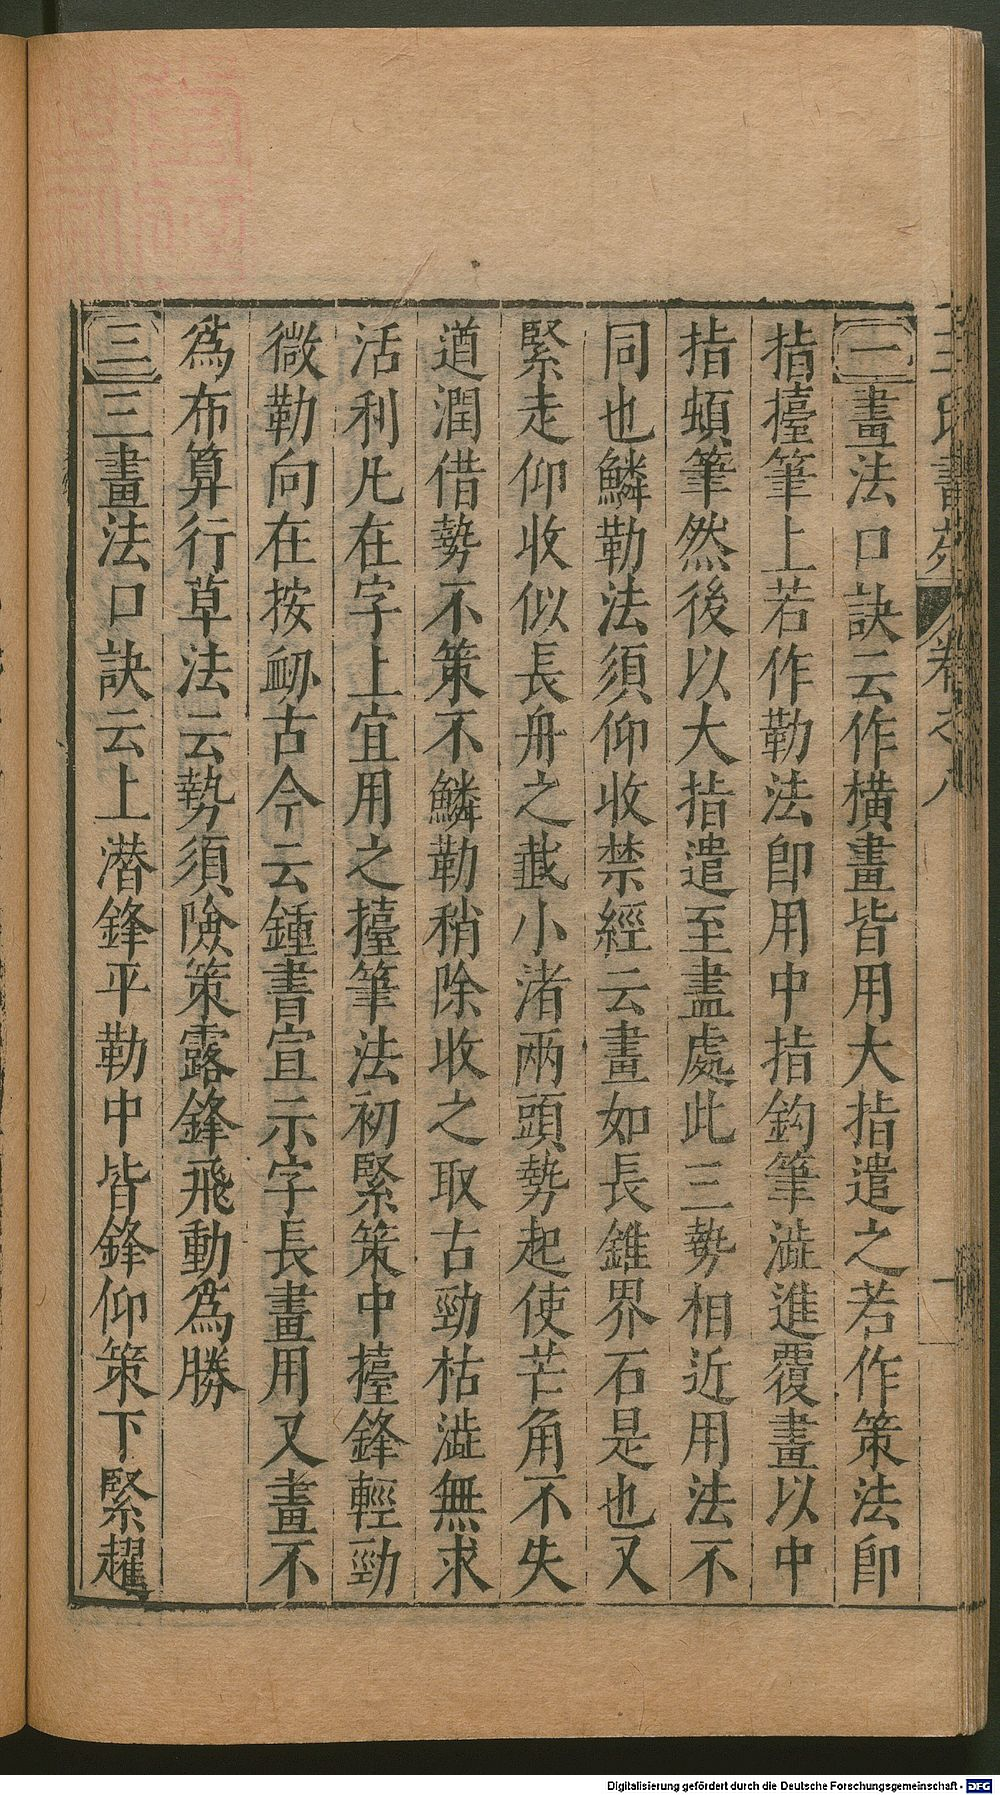 一畫法口訣云作橫畫皆用大指遣之若作策法卽
指擡筆上若作勒法卽用中指鈎筆澁進覆畫以中
指頓筆然後以大指遣至盡處此三勢相近用法不
同也鱗勒法須仰收禁經云畫如長錐界石是也又
緊走仰收似長舟之截小渚兩頭勢起使芒角不失
遒潤借勢不策不鱗勒稍除收之取古勁枯澁無求
活利凡在字上宜用之擡筆法初緊策中擡鋒輕勁
微勒向在按衂古今云鍾書宣示字長畫用又畫不
爲布算行草法云勢須險策露鋒飛動爲勝
三三畫法口訣云上潜鋒平勒中皆鋒仰策下緊趯
王氏書苑 卷之八 十
Digitalisierung gefördert durch die Deutsche Forschungsgemeinschaft - DFG